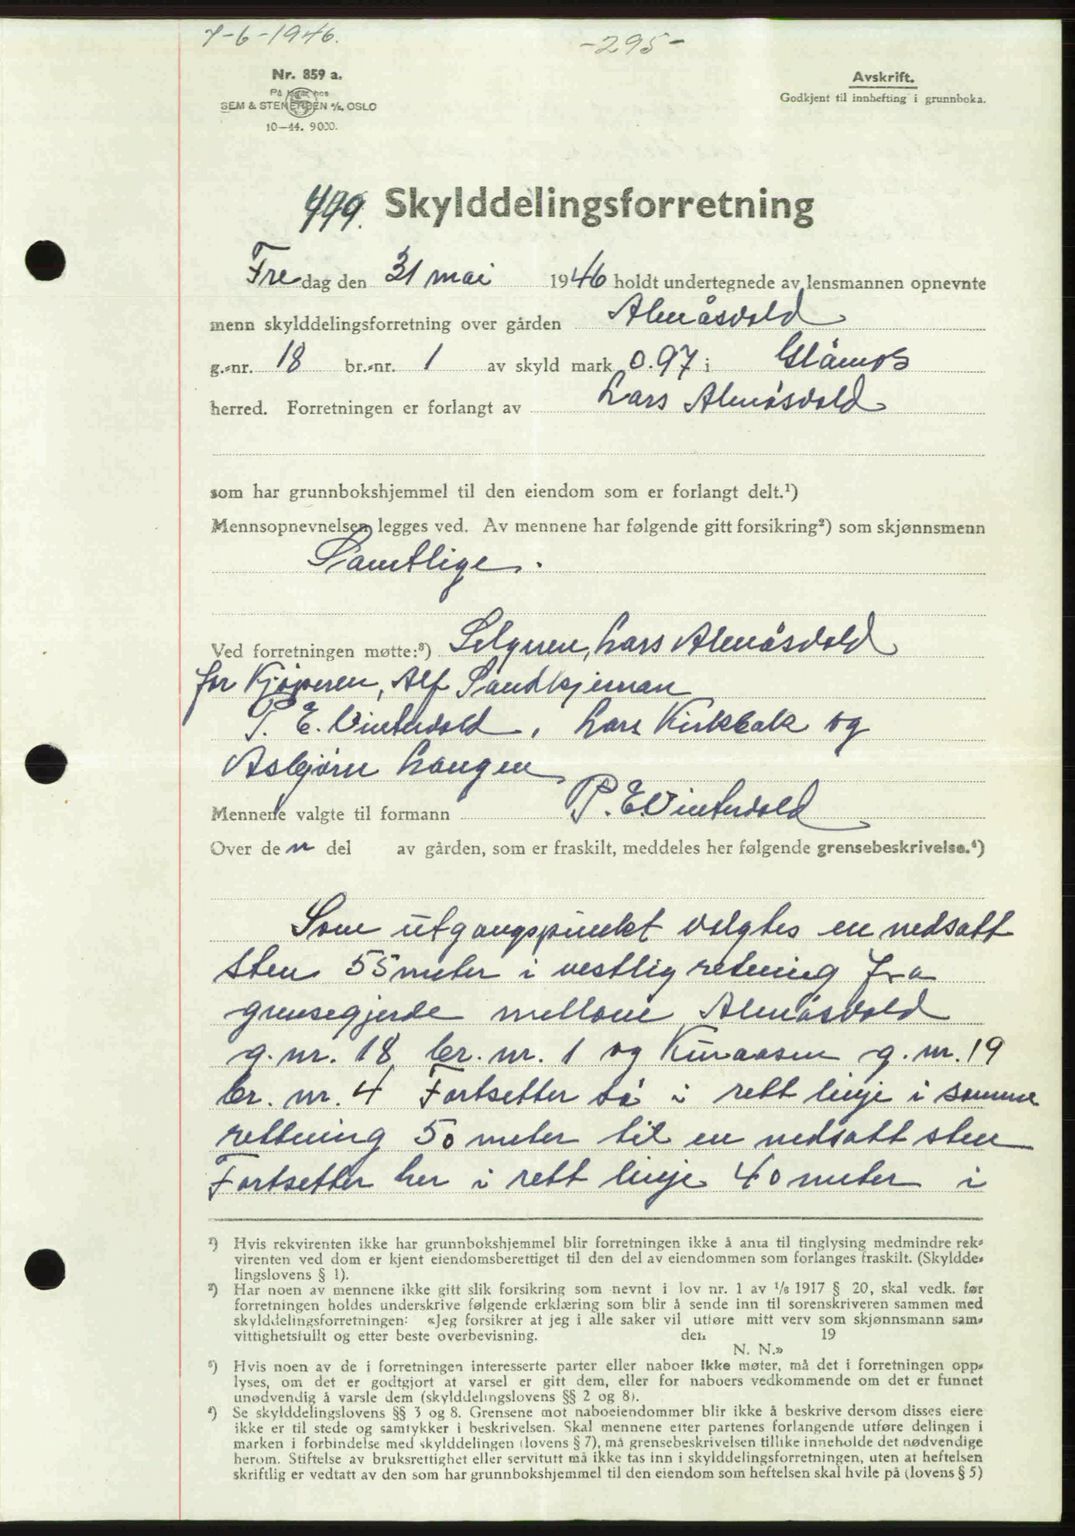 7-6-1946.
-295-
Nr. 859 a.
På lager hos
SEM & STENERSEN A/S. OSLO
10-44. 9000.
Avskrift.
Godkjent til innhefting i grunnboka.
Skylddelingsforretning
Fredag den 31 mai 1946 holdt undertegnede av lensmannen opnevnte
menn skylddelingsforretning over gården Almåsvold
g.-nr. 18 br.-nr. 1 av skyld mark 0.97 i Glåmos
herred. Forretningen er forlangt av Lars Almåsvold
som har grunnbokshjemmel til den eiendom som er forlangt delt.¹)
Mennsopnevnelsen legges ved. Av mennene har følgende gitt forsikring²) som skjønnsmenn
Samtlige.
Ved forretningen møtte:³) Selgeren, Lars Almåsvold
for Kjøperen, Alf Sandkjernan
P. E. Vintervold, Lars Kirkbak og
Asbjørn Langen
Mennene valgte til formann P. E. Vintervold
Over den del av gården, som er fraskilt, meddeles her følgende grensebeskrivelse.⁴)
Som utgangspunkt velgtes en nedsatt
sten 55 meter i vestlig retning fra
grensegjerde mellom Almåsvold
g. nr. 18 br. nr. 1 og Kuraasen g. nr. 19
br. nr. 4 Fortsetter så i rett linje i samme
rettning 50 meter til en nedsatt sten
Fortsetter her i rett linje 40 meter i
¹) Hvis rekvirenten ikke har grunnbokshjemmel blir forretningen ikke å anta til tinglysing medmindre rek-
virenten ved dom er kjent eiendomsberettiget til den del av eiendommen som forlanges fraskilt. (Skyldde-
lingslovens § 1).
²) Har noen av mennene ikke gitt slik forsikring som nevnt i lov nr. 1 av 1/8 1917 § 20, skal vedk. før
forretningen holdes underskrive følgende erklæring som blir å sende inn til sorenskriveren sammen med
skylddelingsforretningen: «Jeg forsikrer at jeg i alle saker vil utføre mitt verv som skjønnsmann sam-
vittighetsfullt og etter beste overbevisning. den 19
N. N.»
³) Hvis noen av de i forretningen interesserte parter eller naboer ikke møter, må det i forretningen opp-
lyses, om det er godtgjort at varsel er gitt dem, eller for naboers vedkommende om det er funnet
unødvendig å varsle dem (skylddelingslovens §§ 2 og 8).
⁴) Se skylddelingslovens §§ 3 og 8. Grensene mot naboeiendommer blir ikke å beskrive dersom disses eiere
ikke er til stede og samtykker i beskrivelsen. Skal mennene etter partenes forlangende utføre delingen i
marken i forbindelse med skylddelingen (lovens § 7), må grensebeskrivelsen tillike inneholde det nødvendige
herom. Stiftelse av bruksrettighet eller servitutt må ikke tas inn i skylddelingsforretningen, uten at heftelsen
skriftlig er vedtatt av den som har grunnbokshjemmel til den eiendom som heftelsen skal hvile på (lovens § 5)